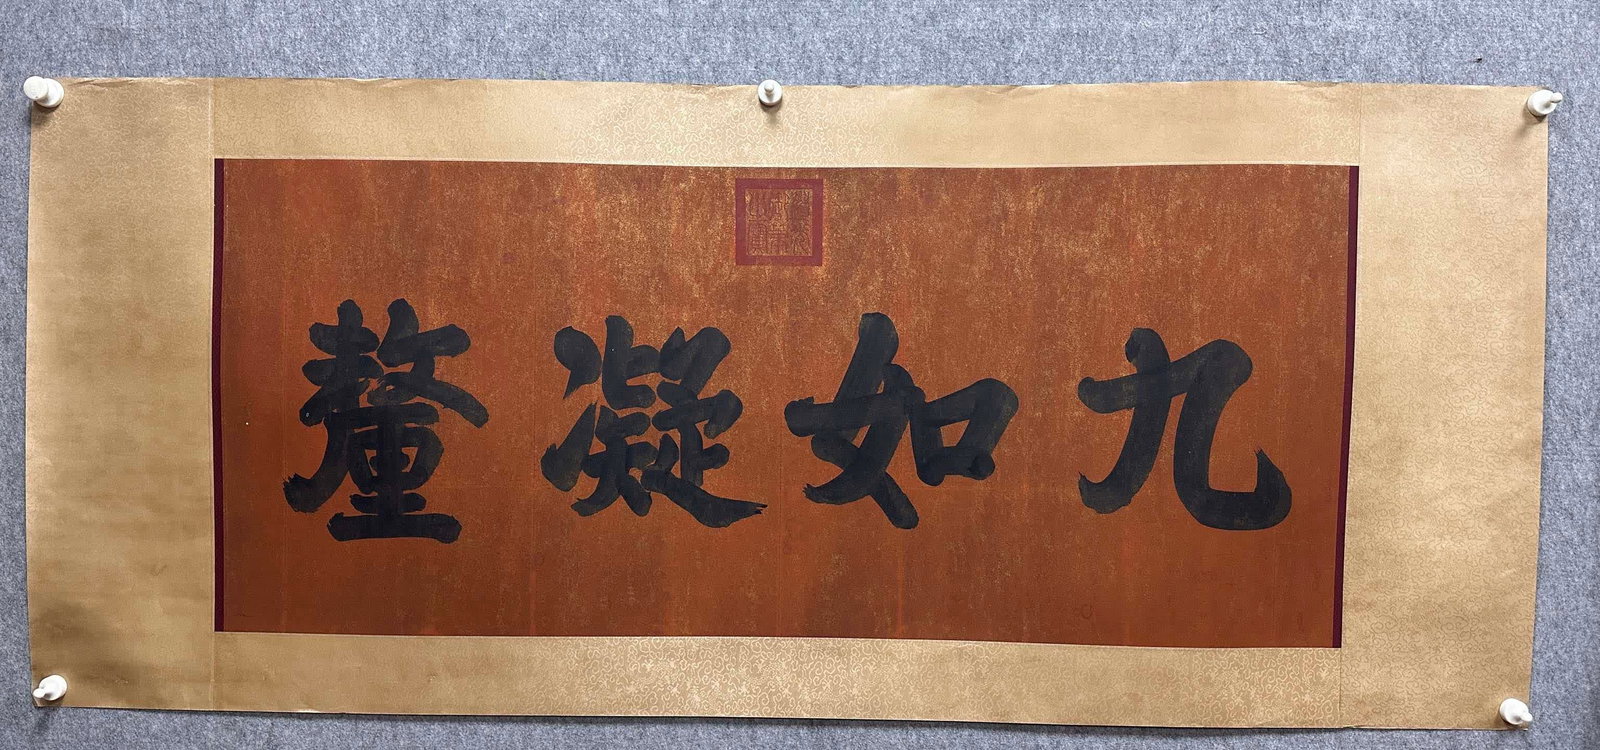 九如凝釐